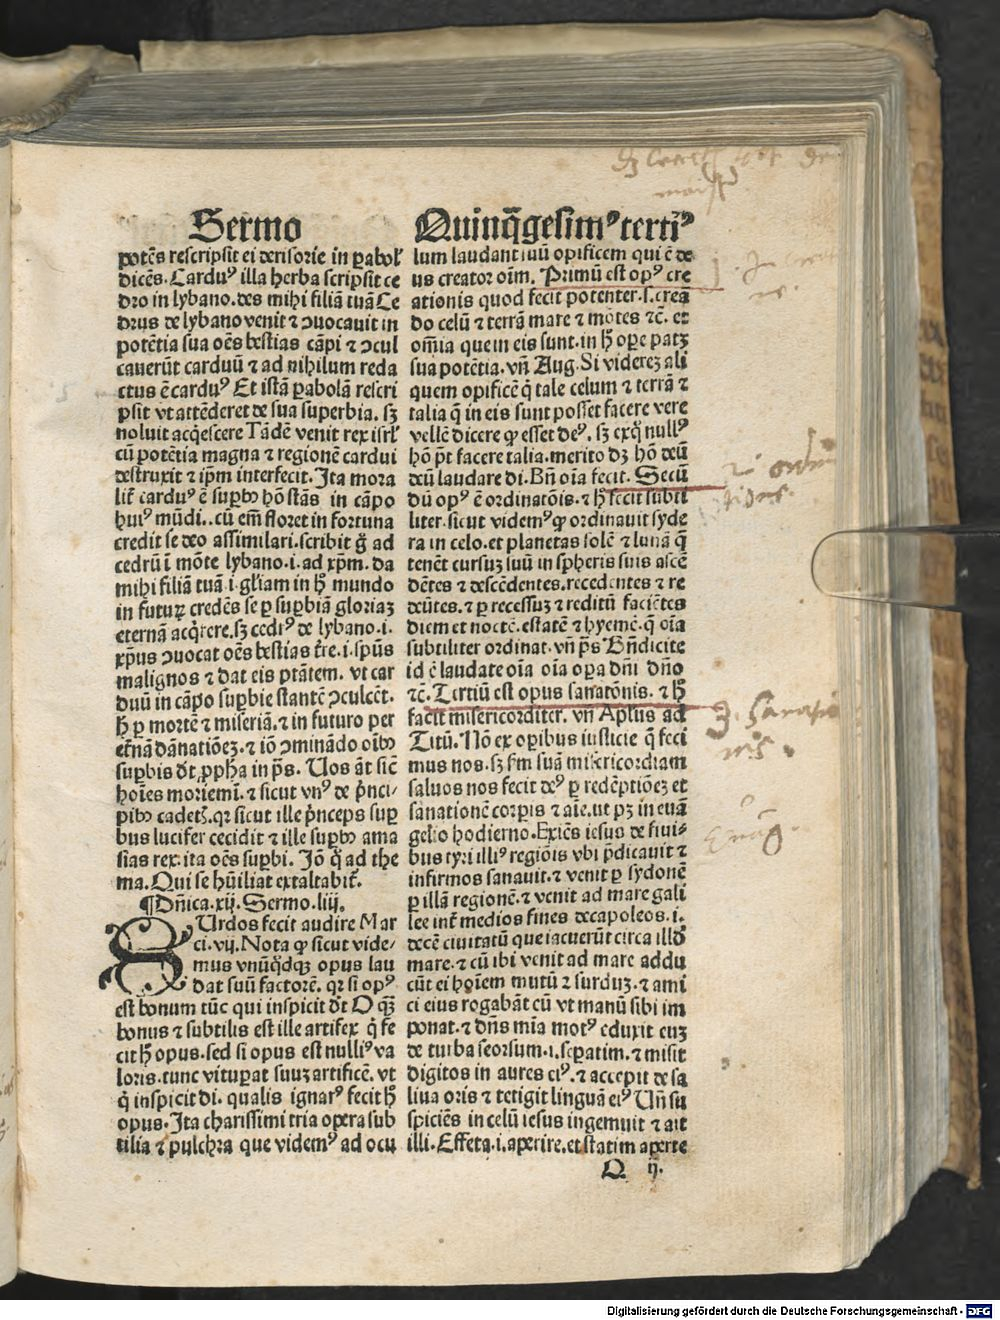 Sermo
Quinq̃gesimꝰ tertiꝰ
potẽs rescripsit ei derisorie in ꝑabol'
dicẽs. Carduꝰ illa herba scripsit ce
dro in lybano. des mihi filiã tuã Ce
drus de lybano venit ⁊ ꝯuocauit in
potẽtia sua oẽs bestias cãpi ⁊ ꝯcul
cauerũt carduũ ⁊ ad nihilum reda
ctus ẽ carduꝰ Et istã ꝑabolã rescri
psit vt attẽderet de sua superbia. sꝫ
noluit acq̃escere Tãdẽ venit rex isrl'
cũ potẽtia magna ⁊ regionẽ cardui
destruxit ⁊ ip̃m interfecit. Ita mora
lit̃ carduꝰ ẽ suꝑbꝰ hõ stãs in cãpo
huiꝰ mũdi. cũ em̃ floret in fortuna
credit se deo assimilari. scribit g̃ ad
cedrũ ĩ mõte lybano .i. ad xp̃m. da
mihi filiã tuã .i. gl'iam in h̃ mundo
in futuꝝ credẽs se ꝑ suꝑbiã gloriaꝫ
eternã acq̃rere. sꝫ cedrꝰ de lybano .i.
xp̃us ꝯuocat oẽs bestias t̃re .i. spũs
malignos ⁊ dat eis ptãtem. vt car
duũ in cãpo suꝑbie stantẽ ꝯculcẽt.
h̃ ꝑ mortẽ ⁊ miseriã. ⁊ in futuro per
et̃nã dãnatiõeꝫ. ⁊ iõ ꝯminãdo oĩbꝰ
suꝑbis dt̃ ꝓpha in ps̃. Uos ãt sic̃
hoĩes moriemĩ. ⁊ sicut vnꝰ de p̃nci-
pibꝰ cadet̃. qr sicut ille p̃nceps suꝑ
bus lucifer cecidit ⁊ ille suꝑbꝰ ama
sias rex. ita oẽs suꝑbi. Iõ q̃ ad the
ma. Qui se hũiliat exaltabit̃.
¶Dñica .xij. Sermo .liij.
SUrdos fecit audire Mar
ci .vij. Nota ꝙ sicut vide-
mus vnũq̃dqꝫ opus lau
dat suũ factorẽ. qr si opꝰ
est bonum tũc qui inspicit dt̃ O q̃ꝫ
bonus ⁊ subtilis est ille artifex q̃ fe
cit h̃ opus. sed si opus est nulliꝰ va
loris. tunc vituꝑat suuꝫ artificẽ. vt
q̃ inspicit di. qualis ignarꝰ fecit h̃
opus. Ita charissimi tria opera sub
tilia ⁊ pulchra que videmꝰ ad ocu
lum laudant suũ opificem qui ẽ de
us creator oĩm. Primũ est opꝰ cre
ationis quod fecit potenter .s. creã
do celũ ⁊ terrã mare ⁊ mõtes ⁊c̃. et
om̃ia que in eis sunt. in h̃ oꝑe patꝫ
sua potẽtia. vñ Aug. Si videreꝫ ali
quem opificẽ q̃ tale celum ⁊ terrã ⁊
talia q̃ in eis sunt posset facere vere
vellẽ dicere ꝙ esset deꝰ. sꝫ exq̃ nullꝰ
hõ p̃t facere talia. merito dꝫ hõ deũ
deũ laudare di. Bñ oĩa fecit. Secũ
dũ opꝰ ẽ ordinatõis. ⁊ h̃ fecit subtil
liter. sicut videmꝰ ꝙ ordinauit syde
ra in celo. et planetas solẽ ⁊ lunã q̃
tenẽt cursuꝫ suũ in spheris suis ascẽ
dẽtes ⁊ descẽdentes. recedentes ⁊ re
deũtes. ⁊ ꝑ recessuꝫ ⁊ reditũ faciẽtes
diem et noctẽ. estatẽ ⁊ hyemẽ. q̃ oĩa
subtiliter ordinat. vñ ps̃ Bñdicite
id ẽ laudate oĩa oĩa oꝑa dñi dño
⁊c̃. Tertiũ est opus sanatõnis. ⁊ h̃
facit misericorditer. vñ Apl'us ad
Titũ. Nõ ex oꝑibus iusticie q̃ feci
mus nos. sꝫ sm̃ suã misericordiam
saluos nos fecit deꝰ ꝑ redẽptiõeꝫ et
sanationẽ corꝑis ⁊ aĩe. ut pꝫ in euã
gelio hodierno. Exiẽs iesus de fini-
bus tyri illiꝰ regiõis vbi p̃dicauit ⁊
infirmos sanauit. ⁊ venit ꝑ sydonẽ
ꝑ illã regionẽ. ⁊ venit ad mare gali
lee int̃ medios fines decapoleos .i.
decẽ ciuitatũ que iacuerũt circa illd̃
mare. ⁊ cũ ibi venit ad mare addu
cũt ei hoĩem mutũ ⁊ surduꝫ. ⁊ ami
ci eius rogabãt cũ vt manũ sibi im
ponat. ⁊ dñs mĩa motꝰ eduxit euꝫ
de turba seorsum .i. seꝑatim. ⁊ misit
digitos in aures eiꝰ. ⁊ accepit de sa
liua oris ⁊ tetigit linguã eiꝰ Uñ su
spiciẽs in celũ iesus ingemuit ⁊ ait
illi. Effeta .i. aperire. et statim aperte
Q ij.
Digitalisierung gefördert durch die Deutsche Forschungsgemeinschaft - DFG